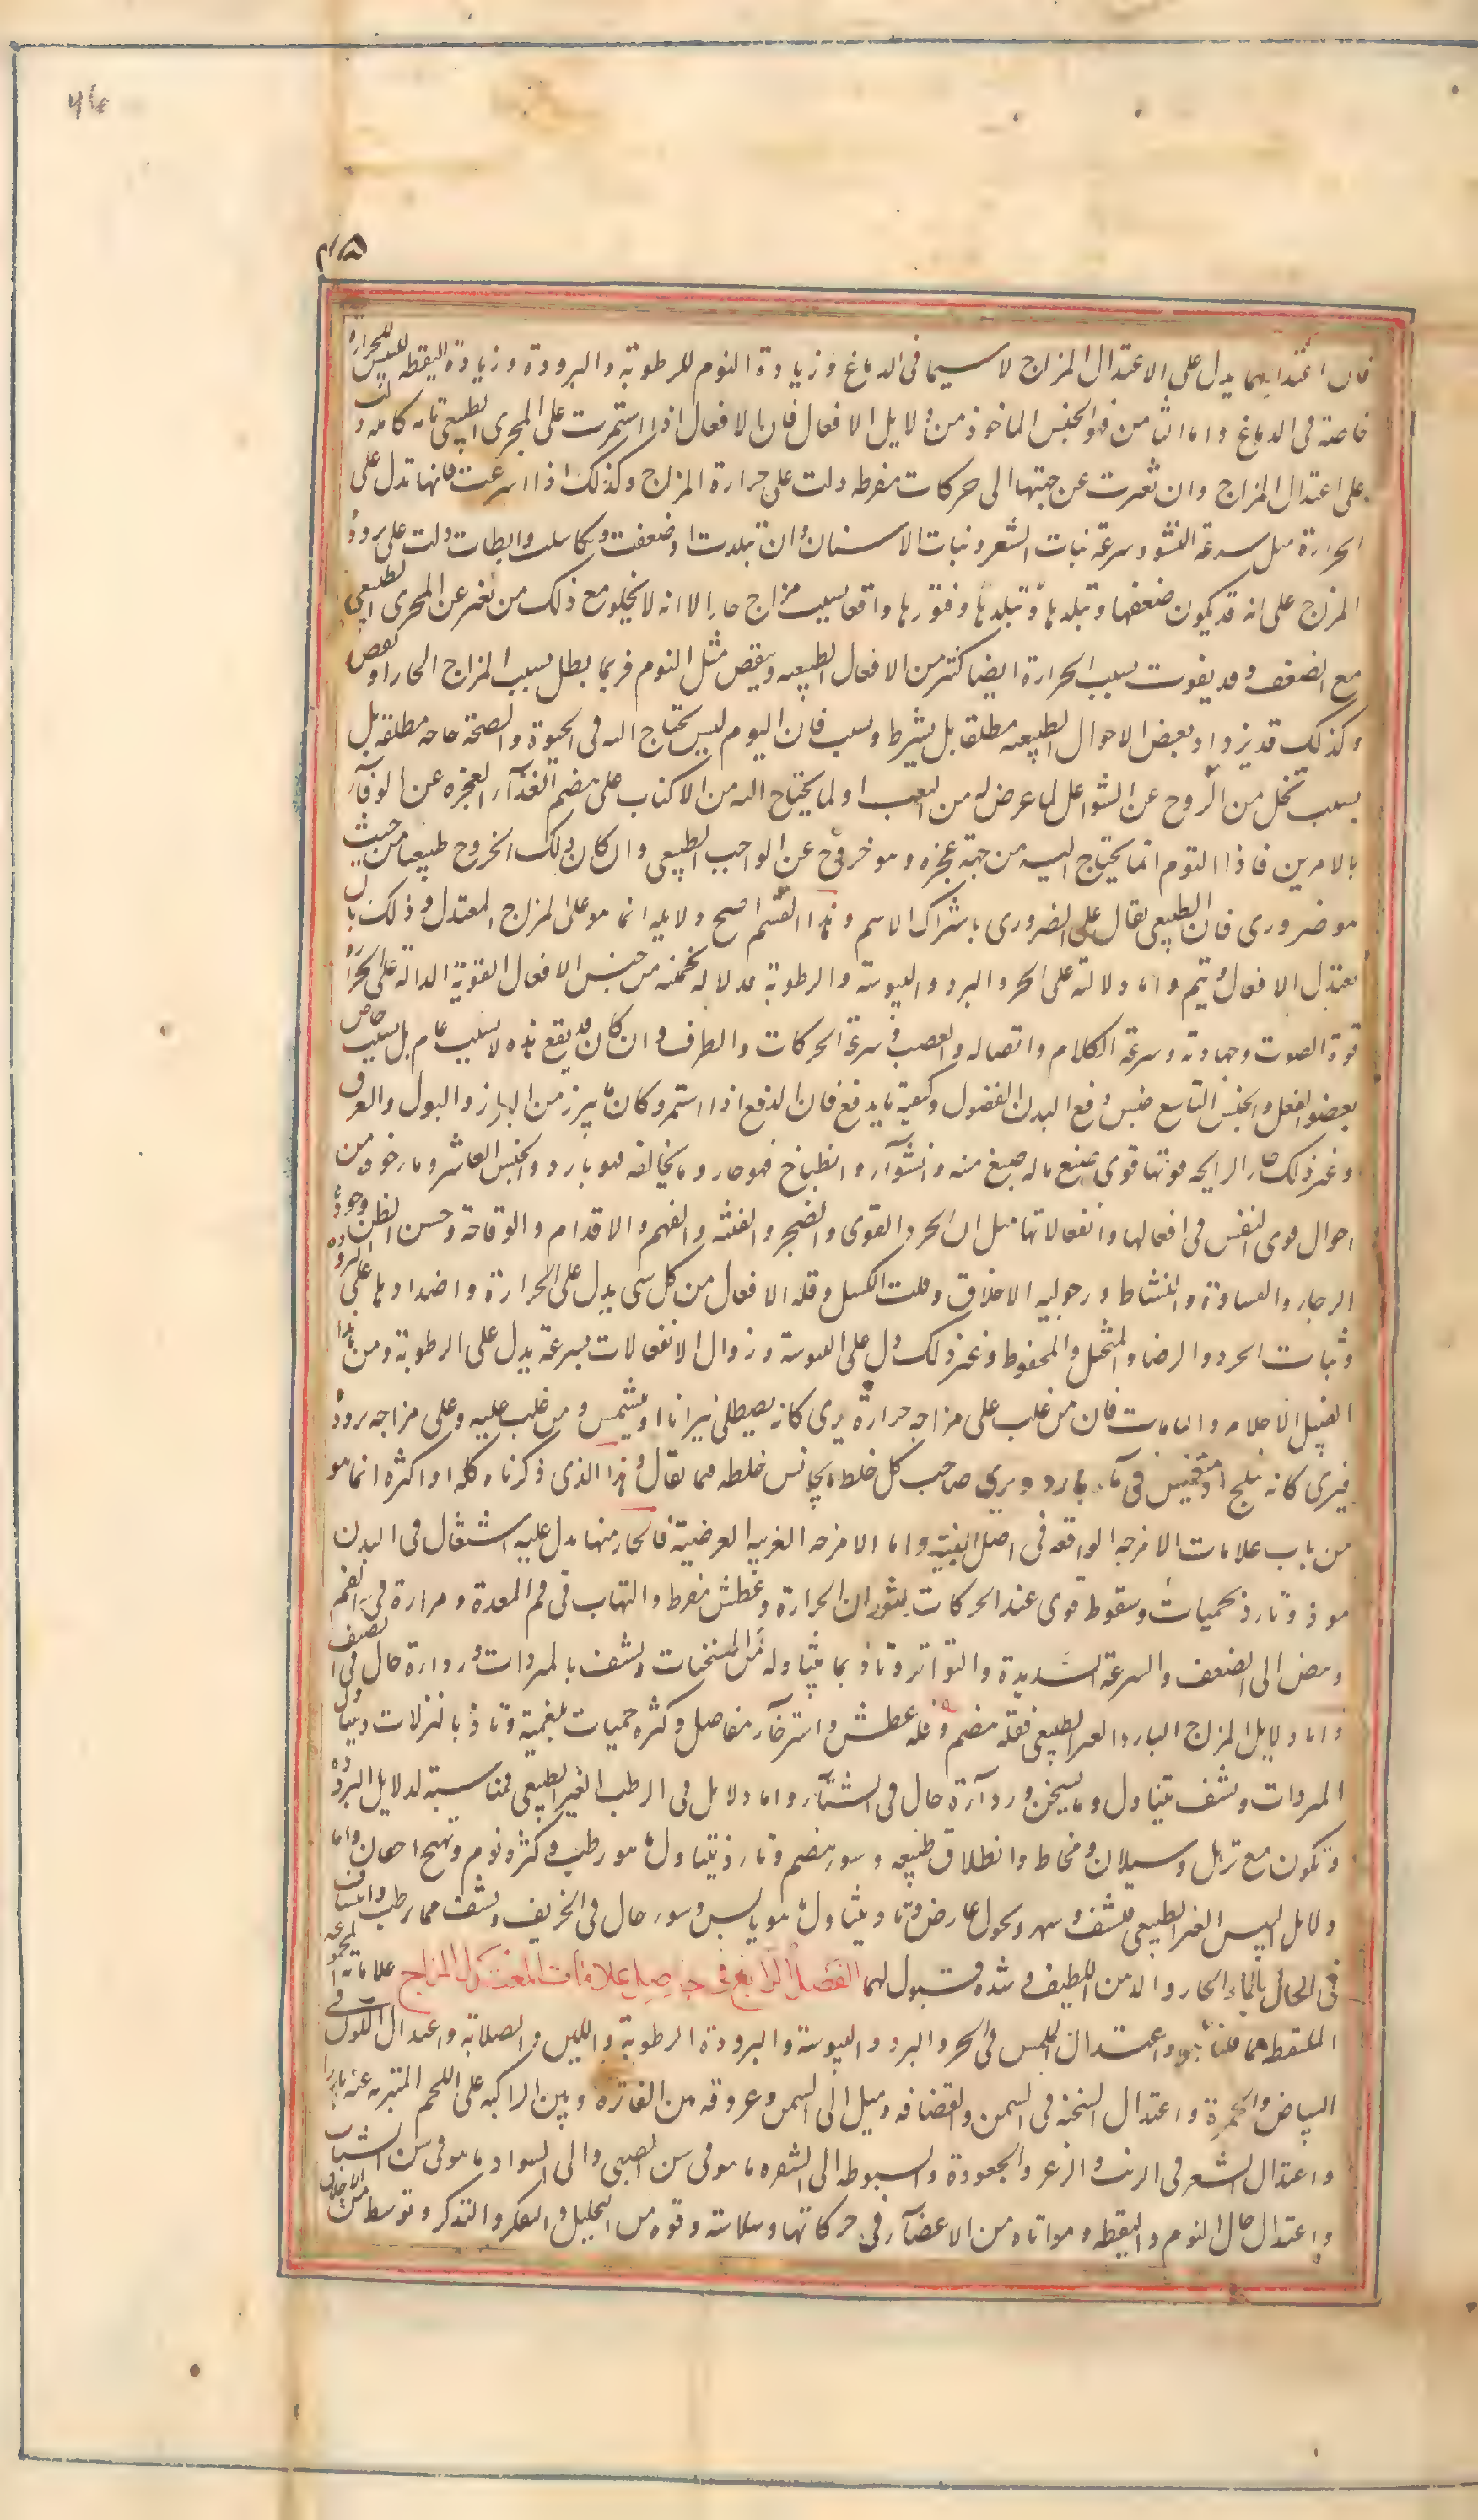 ۴۶
۱۵م
فان اعتدالهما يدل على الاعتدال المزاج لا سيما فى الدماغ و زيادة النوم للرطوبة والبرودة و زيادة اليقظه لليبس للحرارة
خاصة فى الدماغ واما الثامن فهو الجنس الماخوذ من دلايل الافعال فان الافعال اذا استمرت على المجرى الطبيعى تامه كامله دلت
على اعتدال المزاج وان تغيرت عن جهتها الى حركات مفرطه دلت على حرارة المزاج وكذلك اذا اسرعت فانها تدل على
الحرارة مثل سرعة النشو وسرعة نبات الشعر و نبات الاسنان وان تبلدت او ضعفت و تكاسلت وابطات دلت على برودة
المزج على انه قد يكون ضعفها و تبلدها و تبلدها و فتورها واقعا بسبب مزاج حار الا انه لا يخلو مع ذلك من تغير عن المجرى الطبيعى
مع الضعف وقد يفوت بسبب الحرارة ايضا كثير من الافعال الطبيعيه وينقص مثل النوم فربما بطل بسبب المزاج الحار او نقص
وكذلك قد يزداد بعض الاحوال الطبيعيه مطلقا بل بشرط وسبب فان النوم ليس يحتاج اليه فى الحيوة والصحة حاجه مطلقة بل
بسبب تخل من الروح عن الشواغل لما عرض له من التعب او لما يحتاج اليه من الاكباب على هضم الغذآء لعجزه عن الوفآء
بالامرين فاذا النوم انما يحتاج اليه من جهة عجزه وهو خروج عن الواجب الطبيعى وان كان ذلك الخروج طبيعيا من حيث
هو ضرورى فان الطبيعى يقال على الضرورى باشتراك الاسم وهذا القسم اصح دلايله انما هو على المزاج المعتدل و ذلك بان
يعتدل الافعال و يتم واما دلالته على الحر والبرد واليبوسة والرطوبة فدلاله تخمينه من جنس الافعال القوية الدالة على الحرارة
قوة الصوت وجهارته وسرعة الكلام واتصاله والغضب و سرعة الحركات والطرف و ان كان قد يقع هذه لا بسبب عام بل بسبب خاص
بعضو الفعل والجنس التاسع جنس دفع البدن الفضول وكيفية ما يدفع فان الدفع اذا استمر وكان ما يبرز من البراز والبول والعرق
وغير ذلك حار الرايحه قويها قوى صبغ ما له صبغ منه وانشوآء وانطباخ فهو حار وما يخالفه فهو بارد والجنس العاشر وما خوذ من
احوال قوى النفس فى افعالها وانفعالاتها مثل ان الحرد القوى والضجر والفطنه والفهم والاقدام والوقاحة وحسن الظن وجودة
الرجاء والقساوة والنشاط ورجوليه الاخلاق وقلت الكسل وقلة الافعال من كل شى يدل على الحرارة واضدادها على البرودة
وثبات الحرد والرضا والمتخيل والمحفوظ وغير ذلك دل على اليبوسة وزوال الانفعالات بسرعة يدل على الرطوبة ومن هذا
القبيل الاحلام والمنامات فان من غلب على مزاجه حرارة يرى كانه يصطلى نيرانا او يشمس و من غلب عليه وعلى مزاجه برودة
فيرى كانه يثلج او منغمس فى مآء بارد ويرى صاحب كل خلط ما يجانس خلطه فيما يقال و هذا الذى ذكرناه كله او اكثره انما هو
من باب علامات الامزجه الواقعه فى اصل البنية واما الامزجه الغريبه العرضية فالحار منها يدل عليه اشتعال فى البدن
موذ وتاذ بحميات وسقوط قوى عند الحركات لثوران الحرارة وعطش مفرط والتهاب فى فم المعدة ومرارة فى الفم
ونبض الى الضعف والسرعة الشديدة والتواتر وتاذ بما يتناوله من المسخنات وتشف بالمبردات ورداءة حال فى الصيف
واما دلايل المزاج البارد الغير الطبيعى فقلة هضم وقلة عطش واسترخآء مفاصل وكثره حميات بلغمية وتاذ بالنزلات ويتناول
المبردات وتشف يتناول ما يسخن و ردآءة حال فى الشتآء واما دلايل فى الرطب الغير الطبيعى فمناسبة لدلايل البرودة
ويكون مع ترهل وسيلان و مخاط وانطلاق طبيعه وسوء هضم وتاذ يتناول ما هو رطب وكثرة نوم وتهيج اجفان واما
دلايل اليبس الغير الطبيعى فتقشف وسهر ونحول عارض وتاذ يتناول ما هو يابس وسوء حال فى الخريف وتشف مما يرطب وانتشاف
فى الحال بالماء الحار والدهن اللطيف وشدة قبول لهما الفصل الرابع فى حاصل علامات المعتدل المزاج علاماته المجموعه
الملتقطه مما قلناه هو اعتدال اللمس فى الحر والبرد واليبوسة والبرودة الرطوبة واللين والصلابة واعتدال اللون فى
البياض والحمرة واعتدال السخنة فى السمن والقضافه وميل الى السمن وعروقه من الغائرة وبين الراكبه على اللحم المتبريه عنه بارزا
واعتدال الشعر فى الزبب والزعر والجعودة والسبوطه الى الشقره ما هو فى سن الصبى والى السواد ما هو فى سن الشباب
واعتدال حال النوم واليقظه ومواتاه من الاعضآء فى حركاتها وسلاسته وقوه من التخيل والتفكر والتذكر وتوسط من الاخلاق